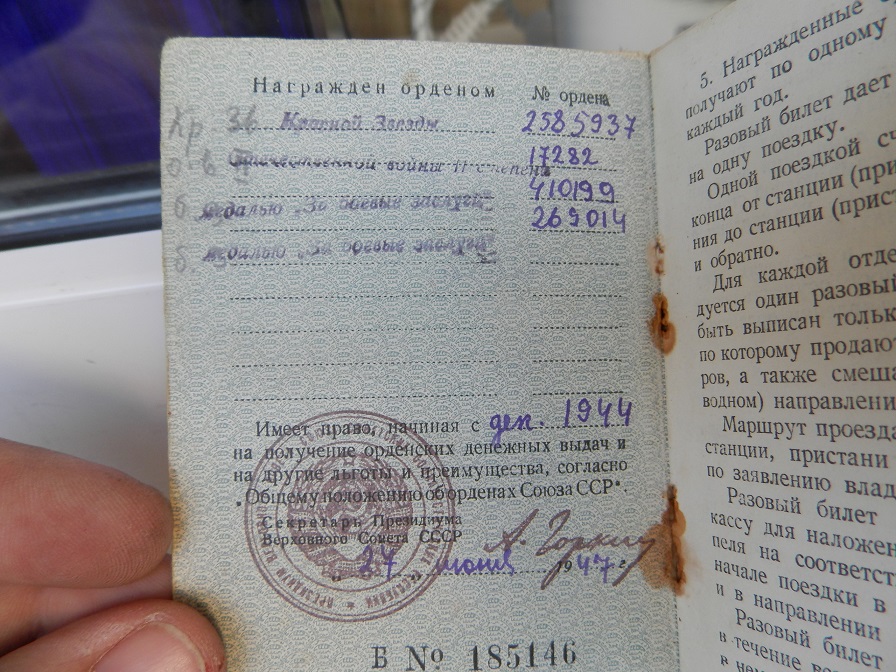 Награжден орденом № ордена
Кр. Зв Красной Звезды 2585937
о. в II Отечественной войны II степени 17282
б. медалью „За боевые заслуги" 410199
269014
б. медалью „За боевые заслуги"
Имеет право, начиная с дек. 1944
на получение орденских денежных выдач и
на другие льготы и преимущества, согласно
„Общему положению об орденах Союза ССР".
Секретарь Президиума
Верховного Совета СССР А. Горкин
„27" июня 1947 г.
В № 185146
5. Награжденные
получают по одному
каждый год.
Разовый билет дает
на одну поездку.
Одной поездкой
конца от станции
ния до станции
и обратно.
Для каждой
дуется один разовый
быть выписан
по которому
ров, а также
водном)
Маршрут
станции, пристани
по заявлению
Разовый билет
кассу для
пеля на
начале поездки в
и в направлении
Разовый билет
в течение